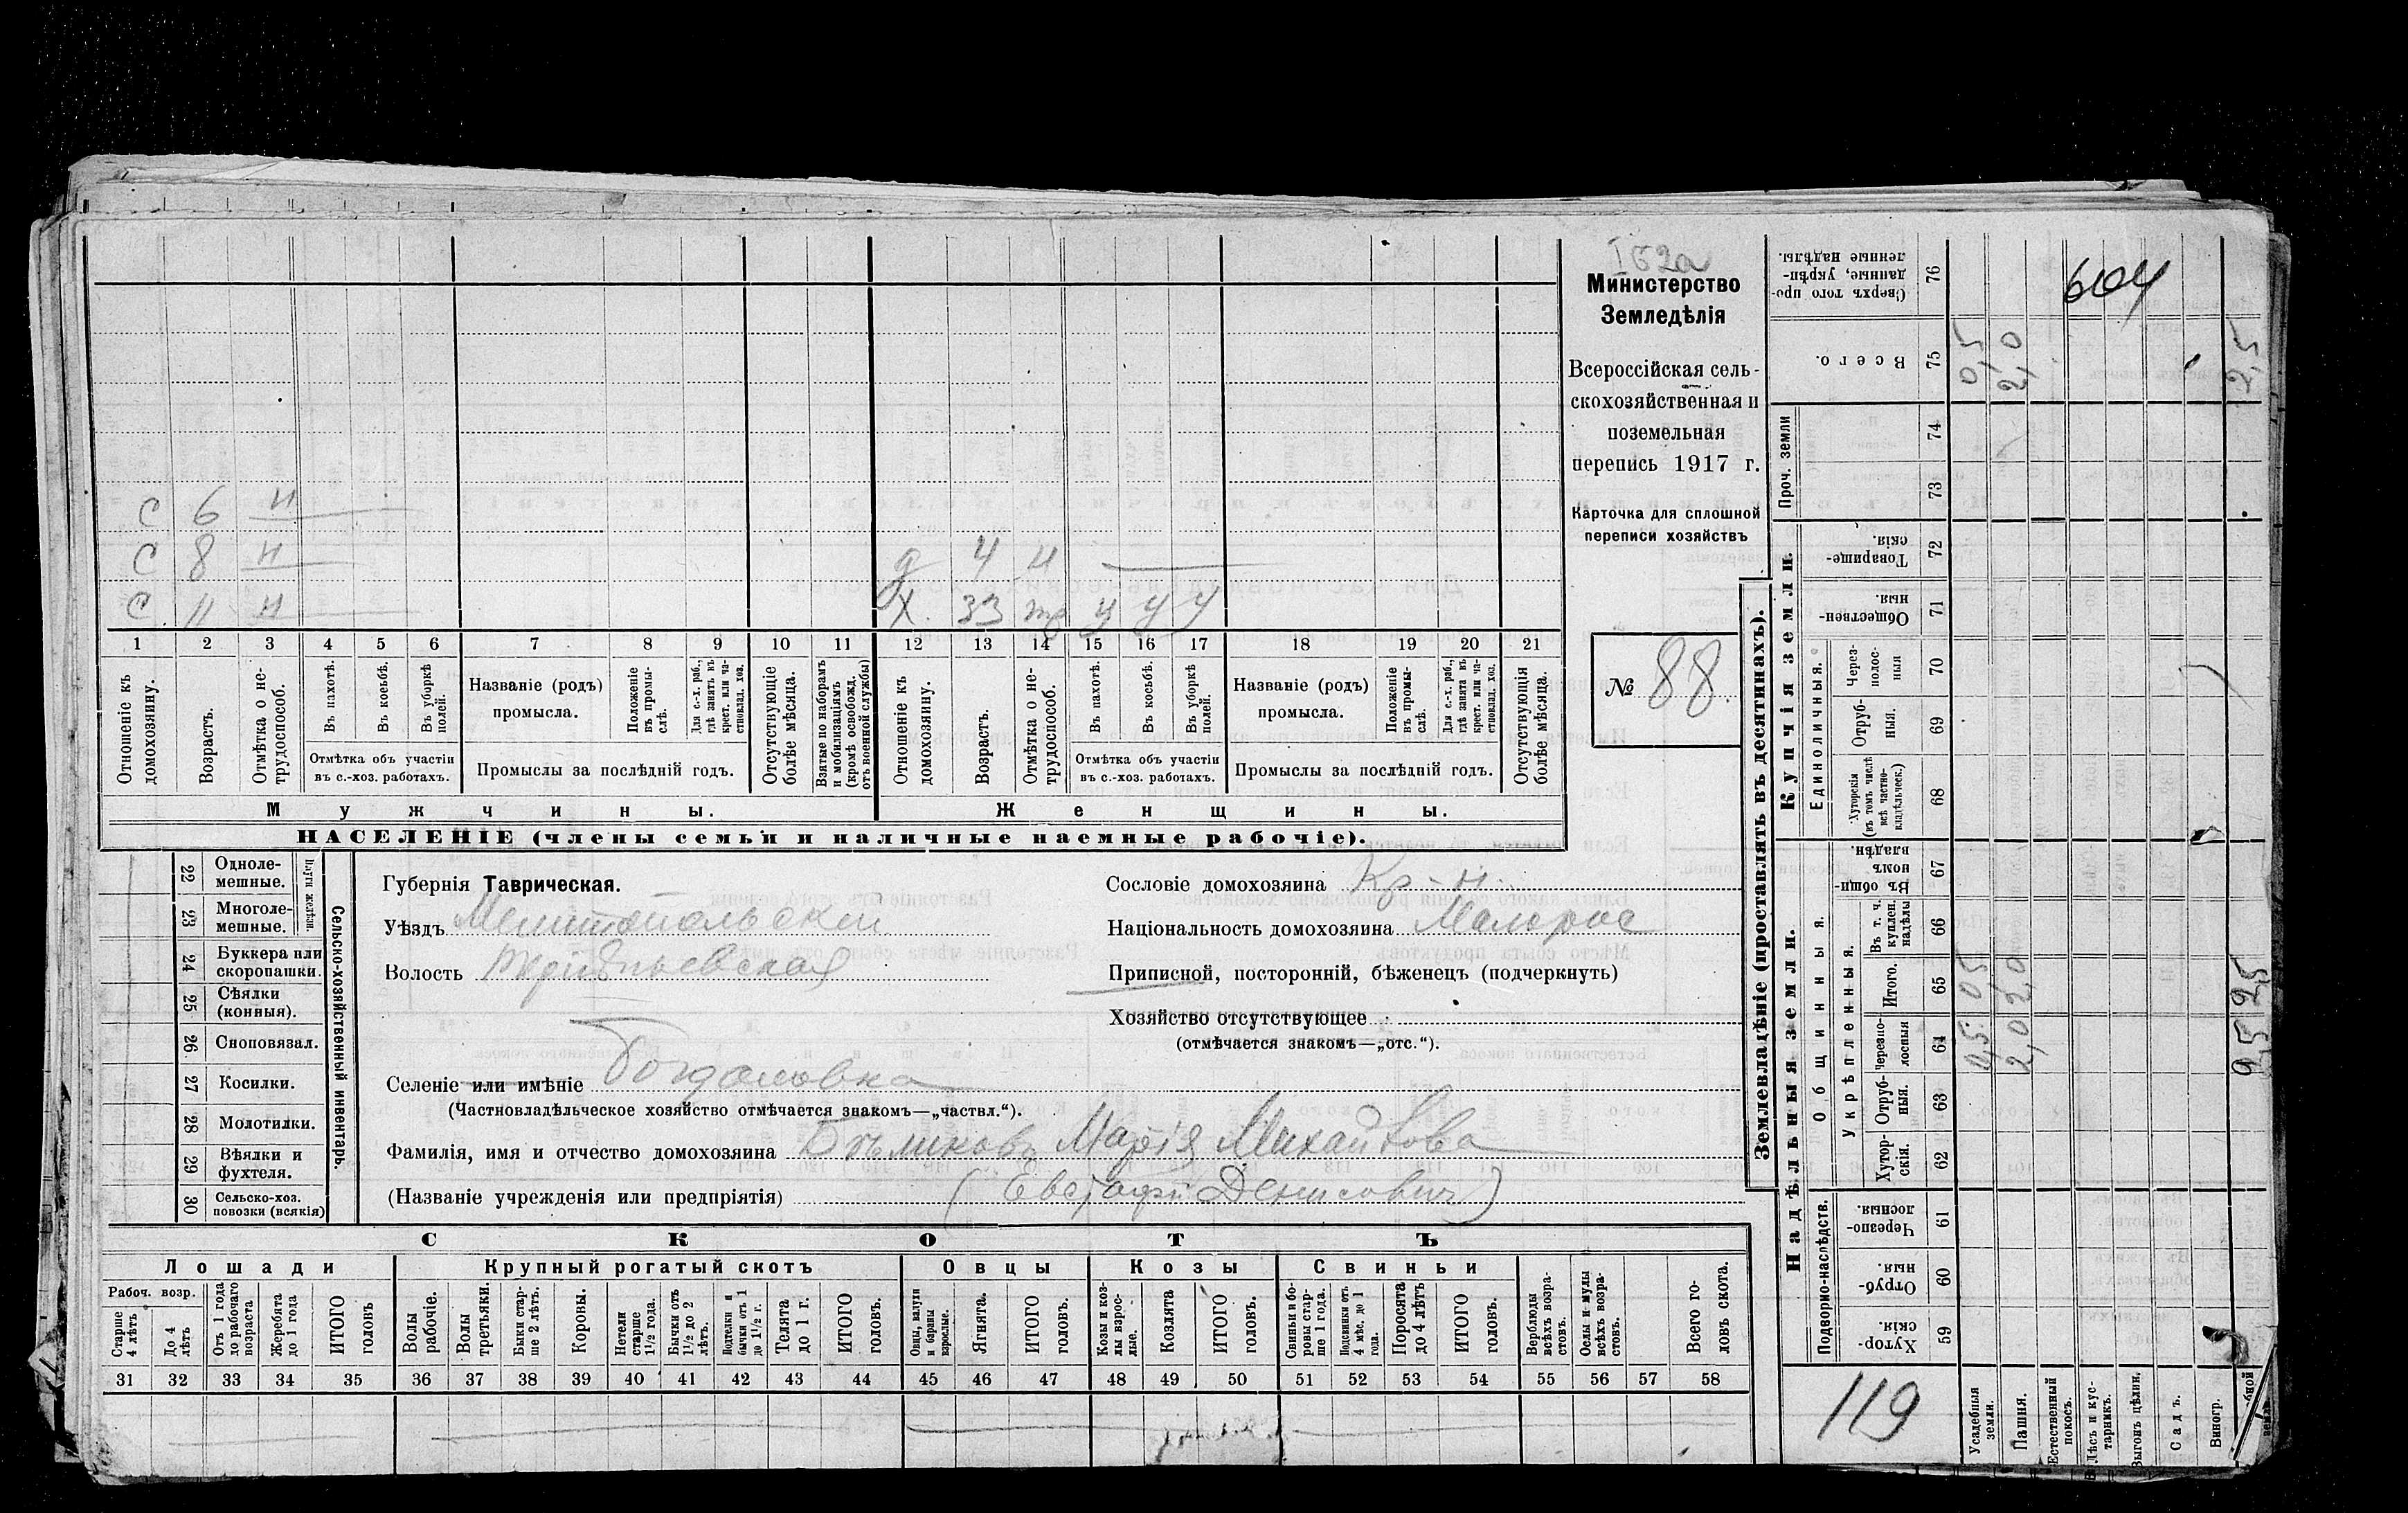 I 62а
Министерство
Земледѣлія
Всероссійская сель-
скохозяйственная и
поземельная
перепись 1917 г.
Карточка для сплошной
переписи хозяйствъ
№ 88.
С 6 н
С 8 н
С. 11 н
д 4 н
Х. 33 тр у у у
1 2 3 4 5 6 7 8 9 10 11 12 13 14 15 16 17 18 19 20 21
Отношеніе къ домохозяину.
Возрастъ.
Отмѣтка о не-трудоспособ.
Въ пахотѣ.
Въ косьбѣ.
Въ уборкѣ полей.
Отмѣтка объ участіи
въ с.-хоз. работахъ.
Названіе (родъ)
промысла.
Положеніе въ промы-слѣ.
Для с.-х. раб., гдѣ занятъ въ крест. или ча-стновлад. хоз.
Промыслы за послѣдній годъ.
Отсутствующіе болѣе мѣсяца.
Взятые по наборамъ и мобилизаціямъ (кромѣ освобожд. отъ военной службы)
Отношеніе къ домохозяину.
Возрастъ.
Отмѣтка о не-трудоспособ.
Въ пахотѣ.
Въ косьбѣ.
Въ уборкѣ полей.
Отмѣтка объ участіи
въ с.-хоз. работахъ.
Названіе (родъ)
промысла.
Положеніе въ промы-слѣ.
Для с.-х. раб., гдѣ занята въ крест. или ча-стновлад. хоз.
Промыслы за послѣдній годъ.
Отсутствующія болѣе мѣсяца.
Мужчины.
Женщины.
НАСЕЛЕНІЕ (члены семьи и наличные наемные рабочіе).
Сельско-хозяйственный инвентарь.
Плуги желѣзн.
22 Одноле-мешные.
23 Многоле-мешные.
24 Буккера или скоропашки.
25 Сѣялки (конныя).
26 Сноповязал.
27 Косилки.
28 Молотилки.
29 Вѣялки и фухтеля.
30 Сельско-хоз. повозки (всякія)
Губернія Таврическая.
Уѣздъ Мелитопольскій
Волость
Сословіе домохозяина Кр-н.
Національность домохозяина Малорос
Приписной, посторонній, бѣженецъ (подчеркнуть)
Хозяйство отсутствующее
(отмѣчается знакомъ—„отс.“).
Селеніе или имѣніе
(Частновладѣльческое хозяйство отмѣчается знакомъ—„частвл.“).
Фамилія, имя и отчество домохозяина Марія Михайлова
(Названіе учрежденія или предпріятія) (Евстафій Денисовичъ)
СКОТЪ
Лошади
Крупный рогатый скотъ
Овцы
Козы
Свиньи
Рабоч. возр.
Старше 4 лѣтъ
До 4 лѣтъ
Отъ 1 года до рабочаго возраста
Жеребята до 1 года
ИТОГО головъ
Волы рабочіе.
Волы третьяки.
Быки стар-ше 2 лѣтъ.
Коровы.
Нетели старше 1 1/2 года.
Бычки отъ 1 1/2 до 2 лѣтъ.
Подтелки и бычки отъ 1 до 1 1/2 г.
Телята до 1 г.
ИТОГО головъ.
Овцы, валухи и бараны взрослые.
Ягнята.
ИТОГО головъ.
Козы и коз-лы взрос-лые.
Козлята
ИТОГО головъ.
Свиньи и бо-ровы стар-ше 1 года.
Подсвинки отъ 4 мѣс. до 1 года.
Поросята до 4 лѣтъ
ИТОГО головъ.
Верблюды всѣхъ возра-стовъ.
Ослы и мулы всѣхъ возра-стовъ.
Всего го-ловъ скота.
31 32 33 34 35 36 37 38 39 40 41 42 43 44 45 46 47 48 49 50 51 52 53 54 55 56 57 58
Землевладѣніе (проставлять въ десятинахъ).
Надѣльныя земли.
Подворно-наслѣдств.
Хутор-скія. 59
Отруб-ныя. 60
Черезпо-лосныя. 61
Общинныя.
Укрѣпленныя.
Хутор-скія. 62
Отруб-ныя. 63
Черезпо-лосныя 64
Итого. 65
Въ т. ч. куплен. надѣлы 66
Въ общин-номъ владѣн. 67
Купчія земли.
Единоличныя.
Хуторскія (въ томъ числѣ всѣ частно-владѣльческ.) 68
Отруб-ныя. 69
Через-полос-ныя 70
Обществен-ныя. 71
Товарище-скія. 72
Проч. земли
73
74
Всего. 75
Сверхъ того про-данные, укрѣп-ленные надѣлы. 76
Усадебныя земли. 0,5 0,5 0,5
Пашня. 2,0 2,0 2,0
Естественный покосъ.
Лѣсъ и кус-тарникъ.
Выгонъ цѣлин.
Садъ.
Виногр.
2,5 2,5 2,5
604
119